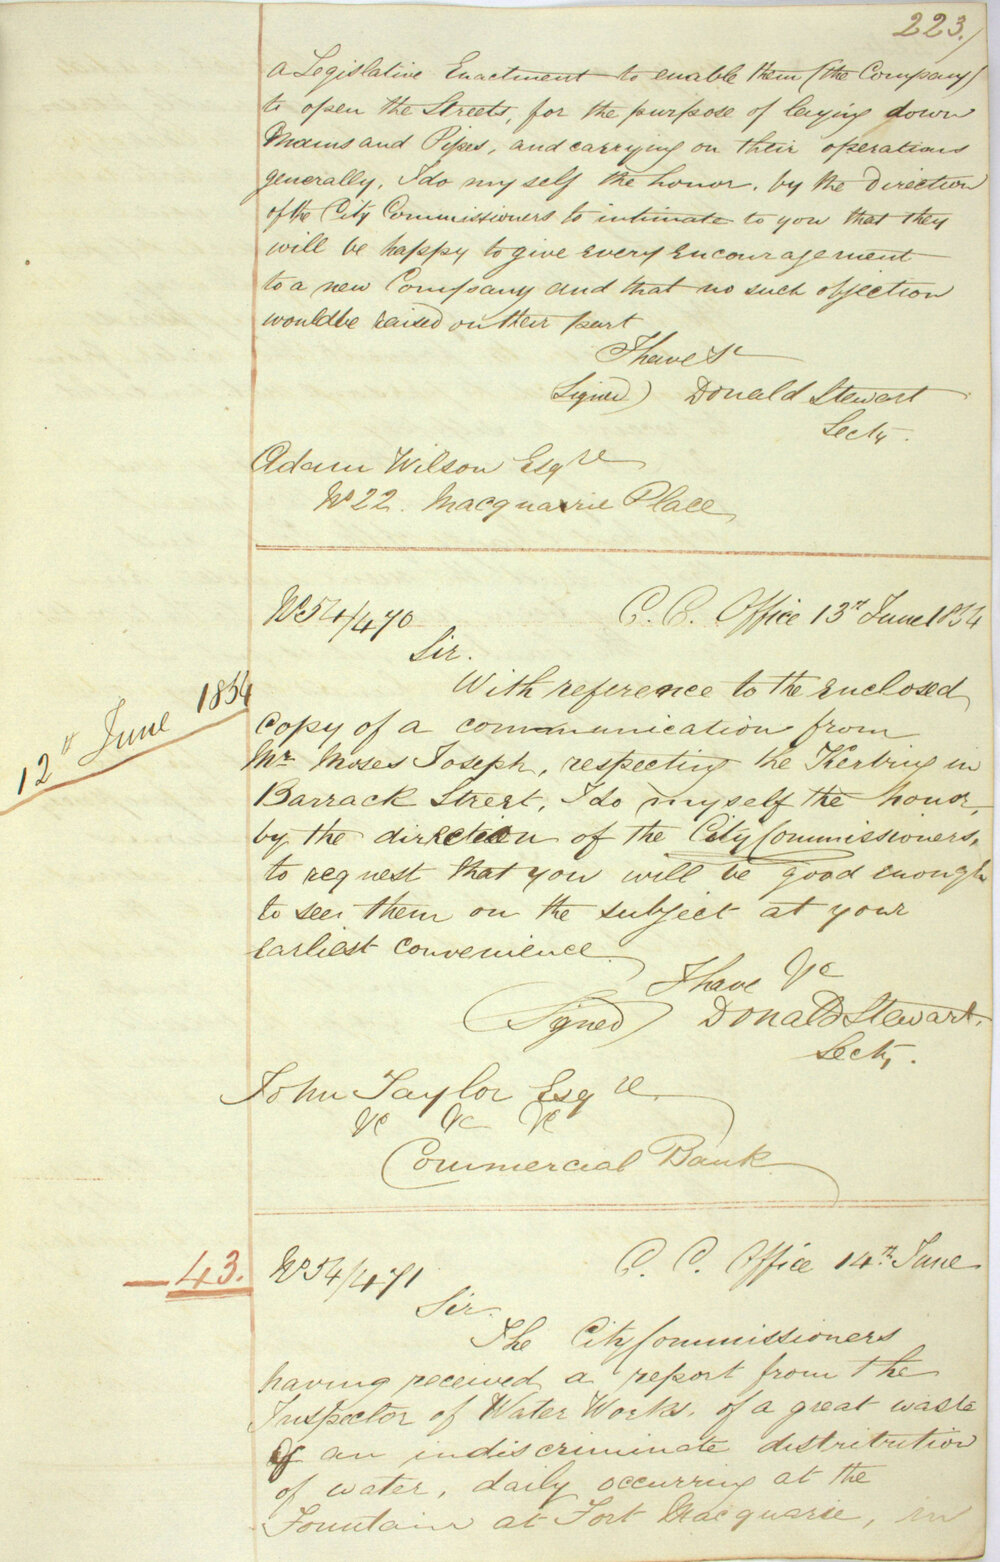 223.
a Legislative Enactment to enable them (the Company)
to open the Streets, for the purpose of laying down
Mains and Pipes, and carrying on their operations
generally, I do myself the honor, by the Direction
of the City Commissioners to intimate to you that they
will be happy to give every Encouragement
to a new Company and that no such objection
would be raised on their part
I have &c
Signed) Donald Stewart
Secty.
Adam Wilson Esqre
No 22. Macquarrie Place
No 54/470 C. C. Office 13th June 1854
Sir.
12th June 1854
With reference to the Enclosed
Copy of a communication from
Mr Moses Joseph, respecting the Kerbing in
Barrack Street, I do myself the honor,
by the direction of the City Commissioners,
to request that you will be good enough
to see them on the subject at your
earliest convenience
I have &c
(Signed) Donald Stewart.
Secty.
John Taylor Esqre
&c &c &c
Commercial Bank
43.
No 54/471 C. C. Office 14th June
Sir.
The City Commissioners
having received a report from the
Inspector of Water Works, of a great waste
& an indiscriminate distribution
of water, daily occurring at the
Fountain at Fort Macquarie, in